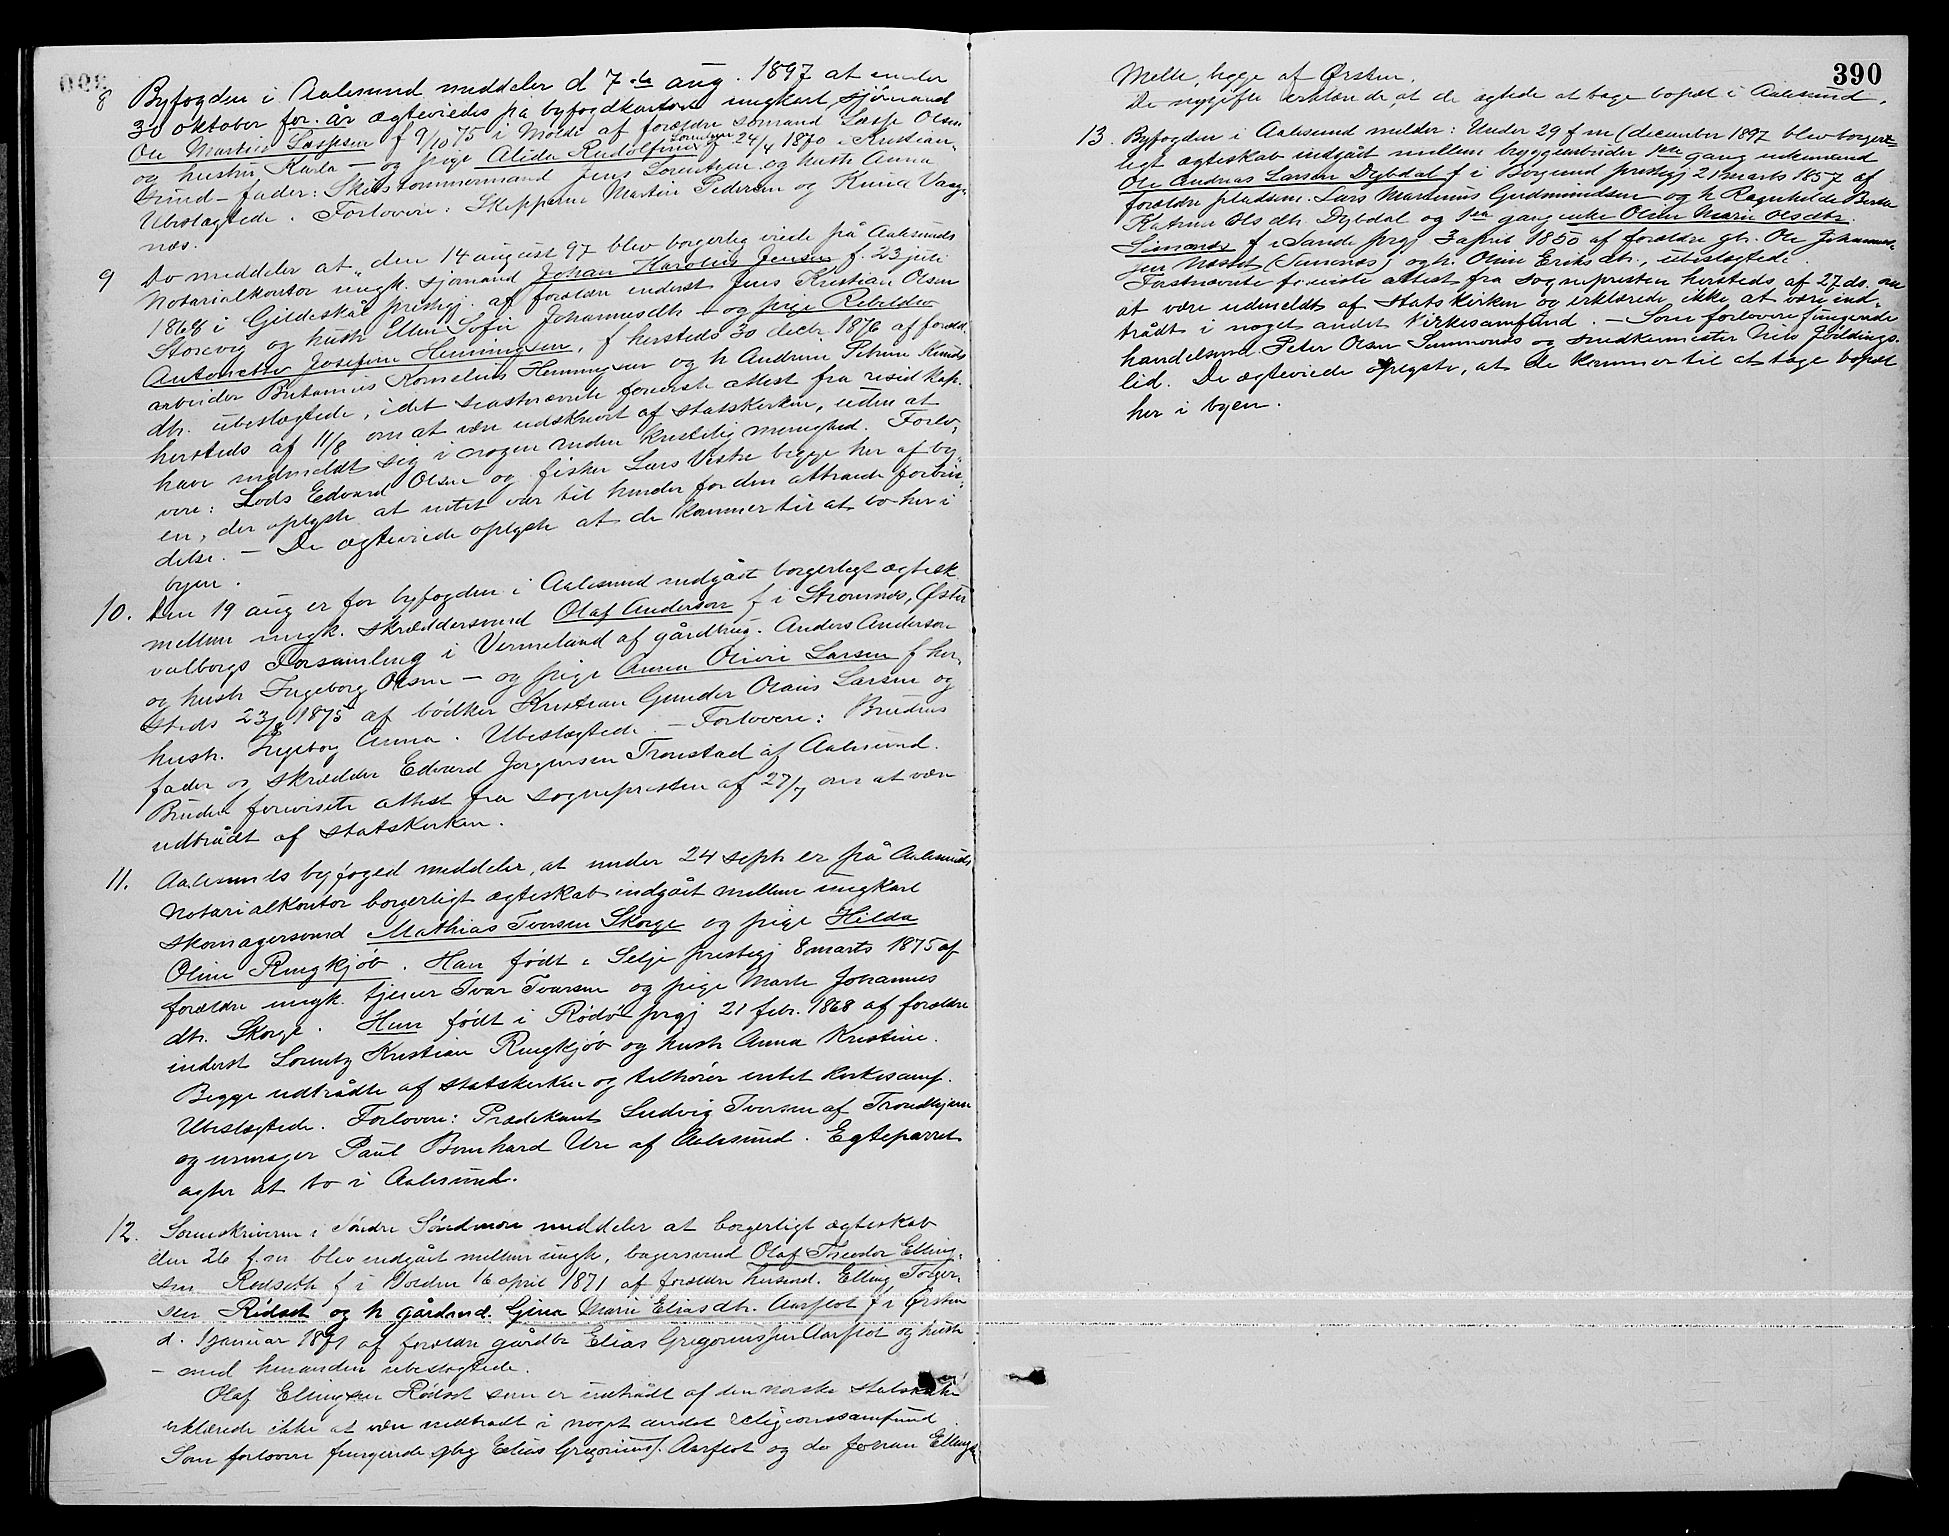 8 Byfogden i Aalesund meddeler d 7de aug. 1897 at under
30 oktober for. år ægteviedes på byfogdkontoret ungkarl sjømand
Ole Martin Jespsen f 9/10 75 i Molde af forældre sømand Jesp Olsen
og hustru Karla – og pige Alida Rudolfine Jensen f 24/4 1870 i Kristian-
sund – fader: Skibstømmermand Jens Sorentsen og hustr Anna
Ubeslægtede. Forlovere: Skipperne Martin Pedersen og Knud Vaag-
næs.
9 Do meddeler at "den 14 august 97 blev borgerlig viede på Aalesunds
Notarialkontor ungk. sjømand Johan Karolius Jensen f. 23 juli
1868 i Gildeskål prestegj. af forældre inderst Jens Kristian Olsen
Storvig og hustr Ellen Sofie Johannesdtr – og pige Rebekka
Antonette Josefine Henningsen, f hersteds 30 decbr 1876 af foræld.
arbeider Britanius Kornelius Henningsen og h Andrine Petrine Knuds
dtr. ubeslægtede, idet sidstnævnte foreviste attest fra resid kap.
hersteds af 11/8 om at være udskrevet af statskirken, uden at
have indmeldt sig i nogen anden kristelig menighed. Forlo-
vere: Lods Edvard Olsen og fisker Lars Vestre begge her af by-
en, der oplyste at intet var til hinder for den attraaede forbin-
delse. – De ægteviede oplyste at de kommer til at bo her i
byen.
10. Den 19 aug er for byfogden i Aalesund indgået borgerligt ægtesk.
mellem ungk. skræddersvend Olaf Anderson f i Stromnes, Øster
valborgs Forsamling i Vermeland af gårdbrug. Anders Anderson
og hustr Ingeborg Olsen – og pige Anna Olivie Larsen f her-
steds 23/ 1875 af bødker Kristian Gunder Olaus Larsen og
hustr. Ingeborg Anna. Ubeslægtede. – Forlovere: Brudens
fader og skrædder Edvard Jørgensen Tronstad af Aalesund.
Bruden foreviste attest fra sognepresten af 27/7 om at være
udtrådt af statskirken.
11. Aalesunds byfoged meddeler, at under 24 septr er på Aalesunds
Notarialkontor borgerligt ægteskab indgået mellem ungkarl
skomagersvend Mathias Iversen Skorge og pige Hilda
Oline Ringkjøb. Han født i Selje prestegj 8 marts 1875 af
forældre ungk. tjener Ivar Iversen og pige Marte Johannes
dtr. Skorge. Hun født i Rødø prgj 21 febr. 1868 af forældre
inderst Lorentz Kristian Ringkjøb og hustr Anna Kristine.
Begge udtrådte af statskirken og tilhører intet kirkesamf.
Ubeslægtede. Forlovere: Prædikant Ludvig Iversen af Trondhjem
og urmager Paul Bernhard Ure af Aalesund. Egteparret
agter at bo i Aalesund.
12. Sorenskriveren i Søndre Søndmøre meddeler at borgerligt ægteskab
den 26 f.m. blev indgået mellem ungk, bagersvend Olaf Theodor Elling-
sen Rødseth f i Volden 16 april 1871 af forældre husmd. Elling Torger-
sen Rødset og h gårdmd. Gina Marie Eliasdtr. Aarflot f i Ørsten
d. 1 januar 1871 af forældre gårdbr Elias Gregoriussen Aarflot og hustr
– med hinanden ubeslægtede.
Olaf Ellingsen Rødset som er udtrådt af den norske statskirke
erklærede ikke at være indtrådt i noget andet religionssamfund.
Som forlovere fungerede gbrg Elias Gregorius. Aarflot og do Johan Ellings
390
Melle, begge af Ørsten.
De nygifte erklærede, at de agtede at tage bopæl i Aalesund.
13. Byfogden i Aalesund melder: Under 29 f m (december 1897 blev borger-
ligt ægteskab indgået mellem byggearbeider 1ste gang enkemand
Ole Andreas Larsen Dybdal f i Borgund prestgj 21 marts 1857 af
forældre pladsm. Lars Martinus Gudmundsen og h Ragnhilde Berte
Katrine Olsdtr. Dybdal og 1ste gang enke Oline Marie Olsdtr.
Simonnes f i Sande prgj 3 april 1850 af forældre gb. Ole Johannes-
sen Næsset (Simnæs) og h. Oline Eriksdtr., ubeslægtede.
Førstnævnte foreviste attest fra sognepresten hersteds af 27 ds. om
at være udmeldt af statskirken og erklærede ikke at være ind-
trådt i noget andet kirkesamfund. – Som forlovere fungerede
handelsmd Peter Olsen Simonnes og smedkemester Nils Jøldings-
lid. De ægteviede oplyste, at de kommer til at tage bopæl
her i byen.